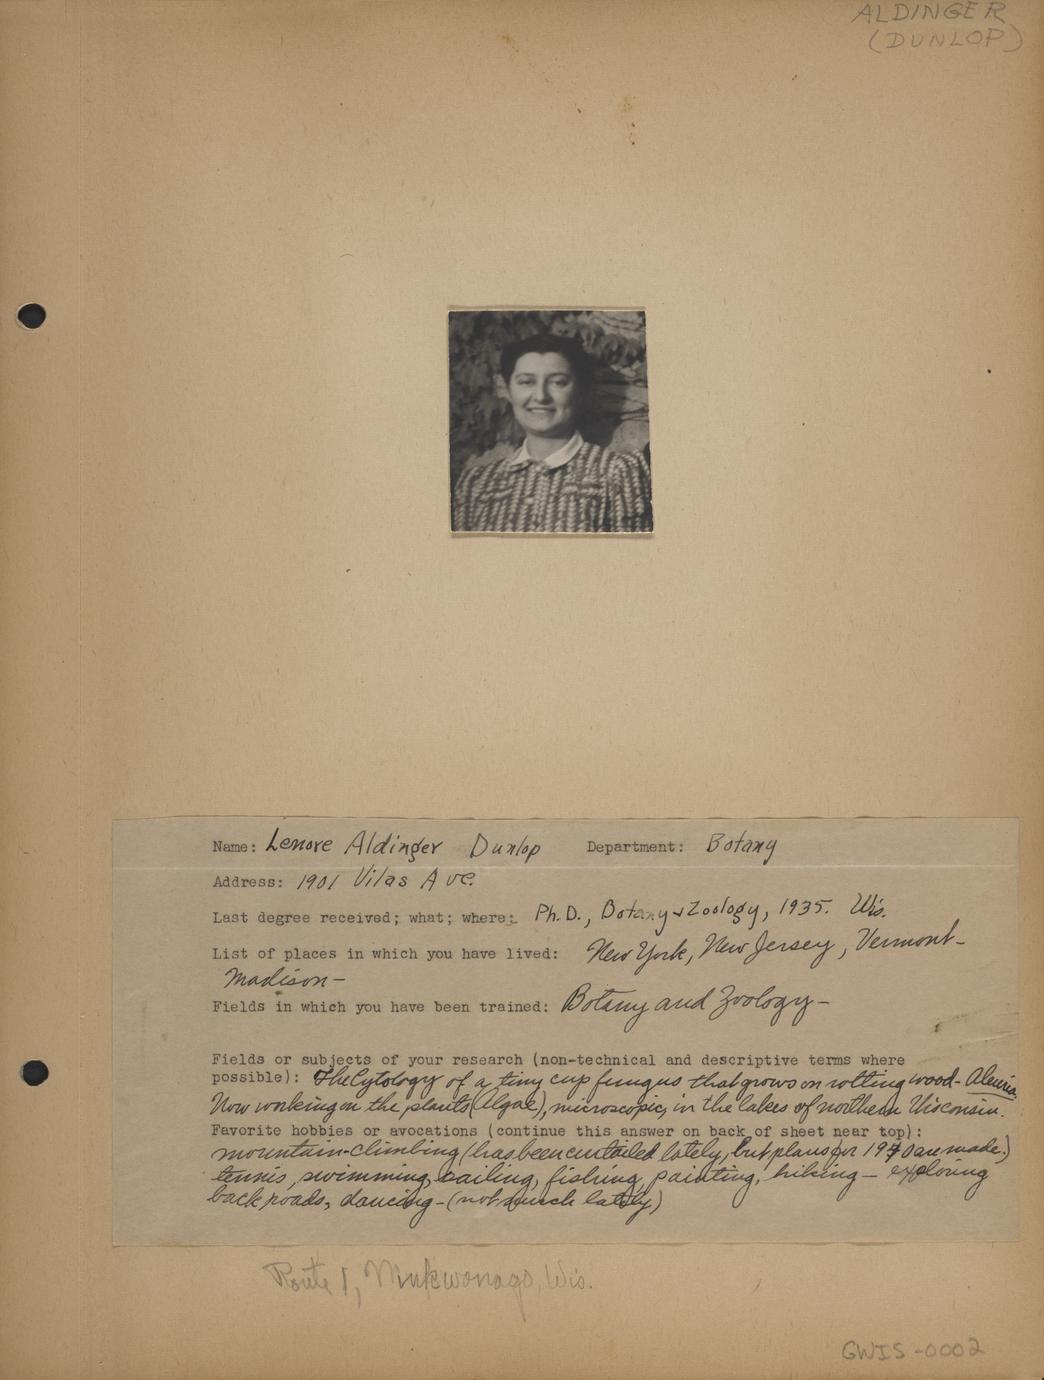 ALDINGER
(DUNLOP)
Name: Lenore Aldinger Dunlop Department: Botany
Address: 1901 Vilas Ave.
Last degree received; what; where: Ph.D., Botany & Zoology, 1935. Wis.
List of places in which you have lived: New York, New Jersey, Vermont-
Madison-
Fields in which you have been trained: Botany and Zoology-
Fields or subjects of your research (non-technical and descriptive terms where
possible): The Cytology of a tiny cup fungus that grows on rotting wood- Aleuria.
Now working on the plants (Algae), microscopic, in the lakes of northern Wisconsin.
Favorite hobbies or avocations (continue this answer on back of sheet near top):
mountain-climbing (has been curtailed lately, but plans for 1940 are made.)
tennis, swimming, sailing, fishing, painting, hiking- exploring
back roads, dancing-(not much lately)
Route 1, Mukwonago, Wis.
GWIS-0002